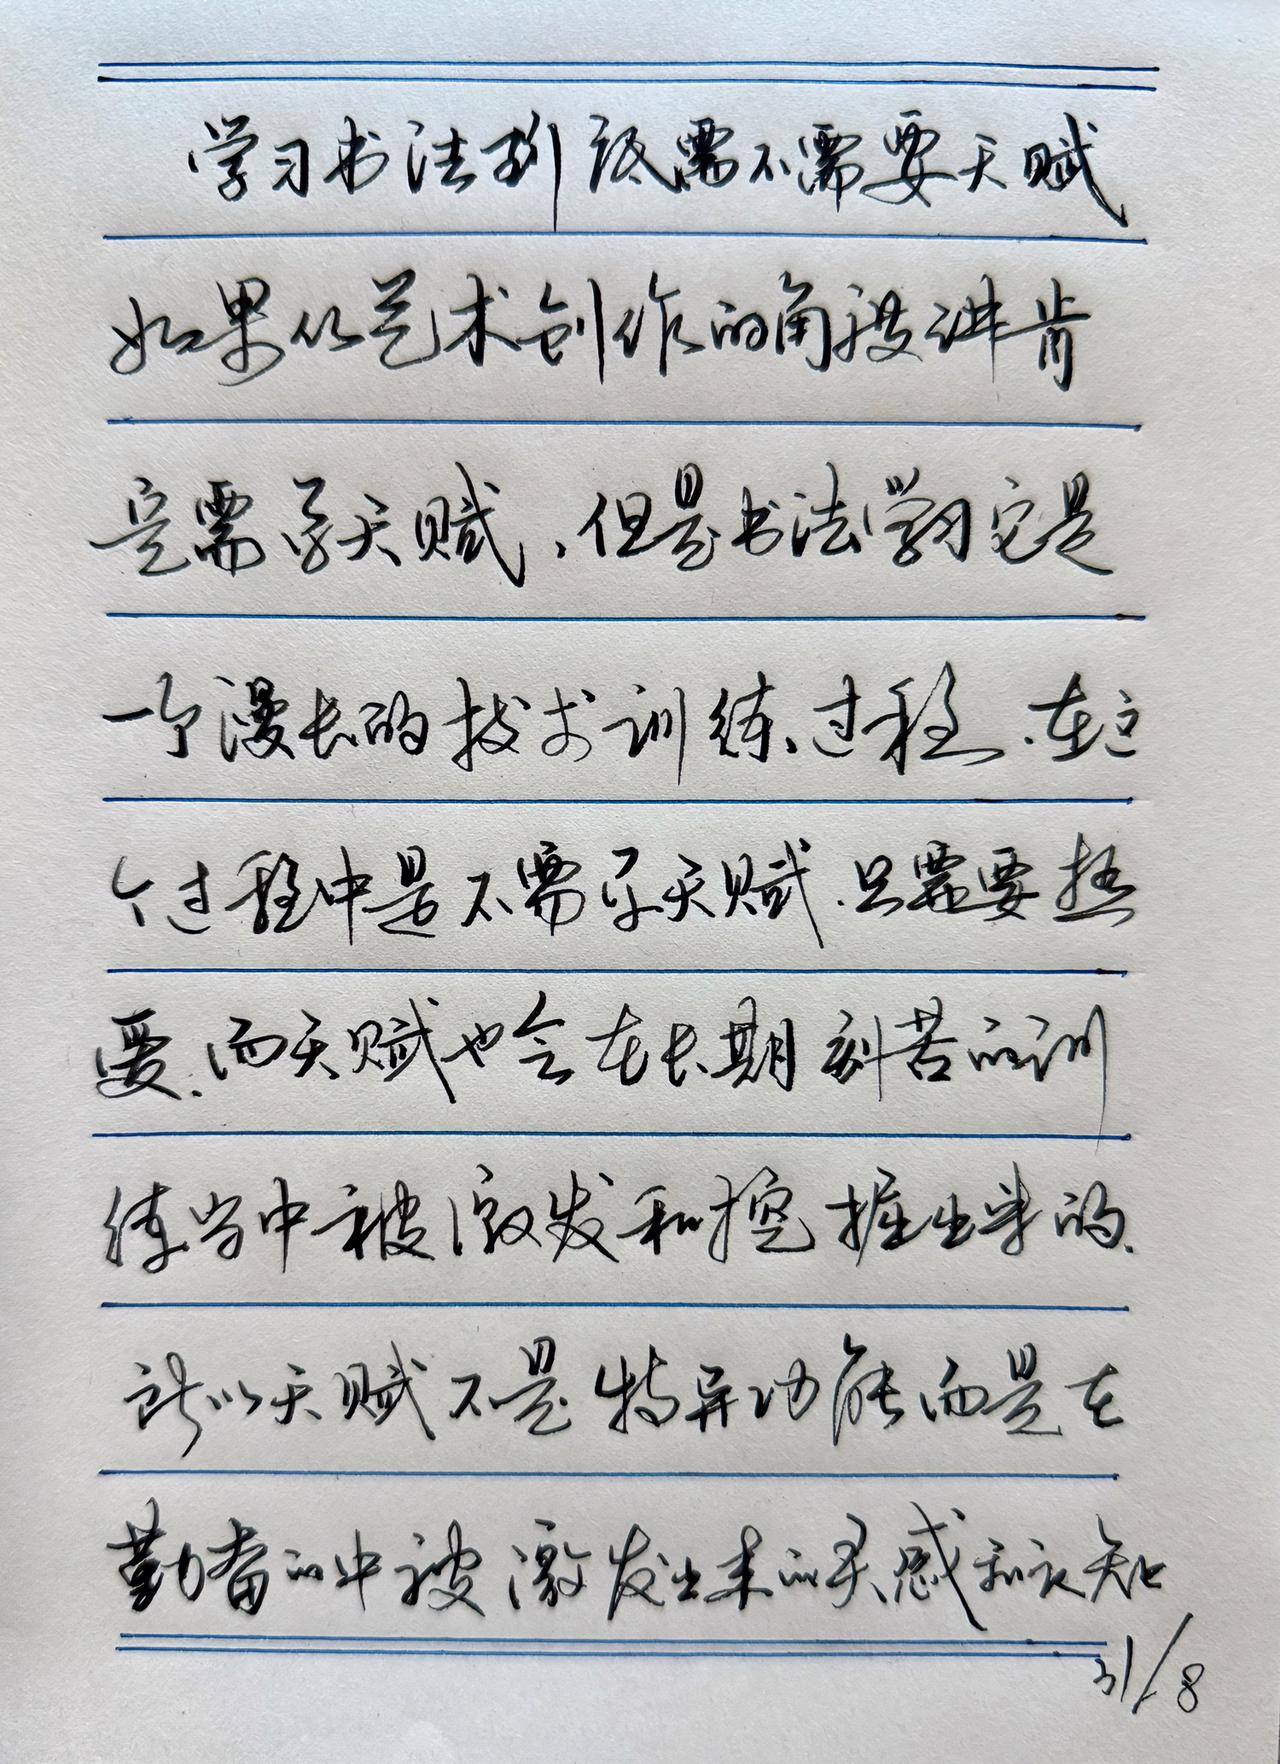 学习书法到底需不需要天赋
如果从艺术创作的角度讲肯
定需要天赋，但是书法学习它是
一个漫长的技术训练过程，在这
个过程中是不需要天赋，只需要热
爱，而天赋也会在长期刻苦的训
练当中被激发和挖掘出来的，
所以天赋不是特异功能而是在
勤奋的中被激发出来的灵感和认知
31/8